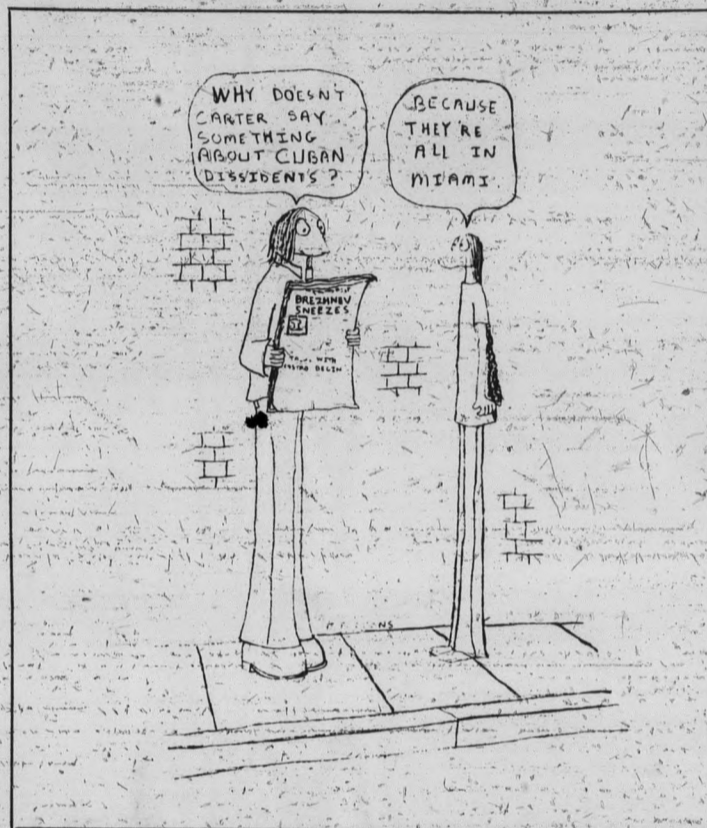 WHY DOESN'T
CARTER SAY
SOMETHING
ABOUT CUBAN
DISSIDENTS?
BECAUSE
THEY'RE
ALL IN
MIAMI.
BREZHNEV
SNEEZES
WITH